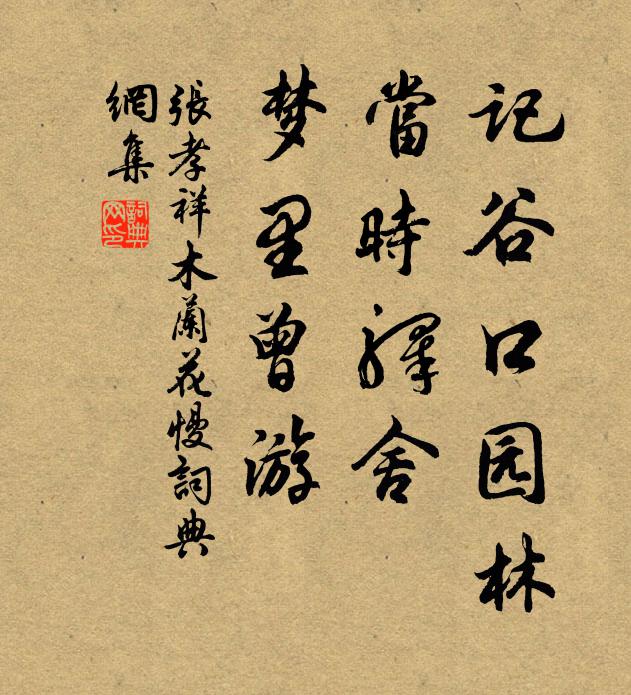 记谷口园林
當時驛舍
梦里曾游
張孝祥木蘭花慢詞典
網集
詞典
网印